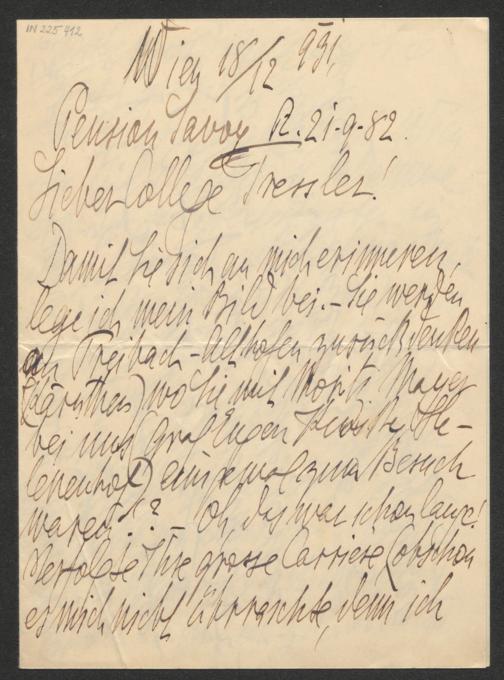 IN 225 412
Wien 18/12 931,
Pension Savoy R. 21-9-82.
Lieber College Tressler!
Damit Sie sich an mich erinneren,
lege ich mein Bild bei. – Sie werden
an Treibach-Althofen zurückdenken
(Kärnthen) wo Sie mit Moritz Mayer
bei uns (Graf Eugen He-
lenenhof) einsmal zum Besuch
waren!? – Oh, das war schon lange!
Verfolgte Ihre grosse Carriere (obschon
es mich nicht überraschte, denn ich